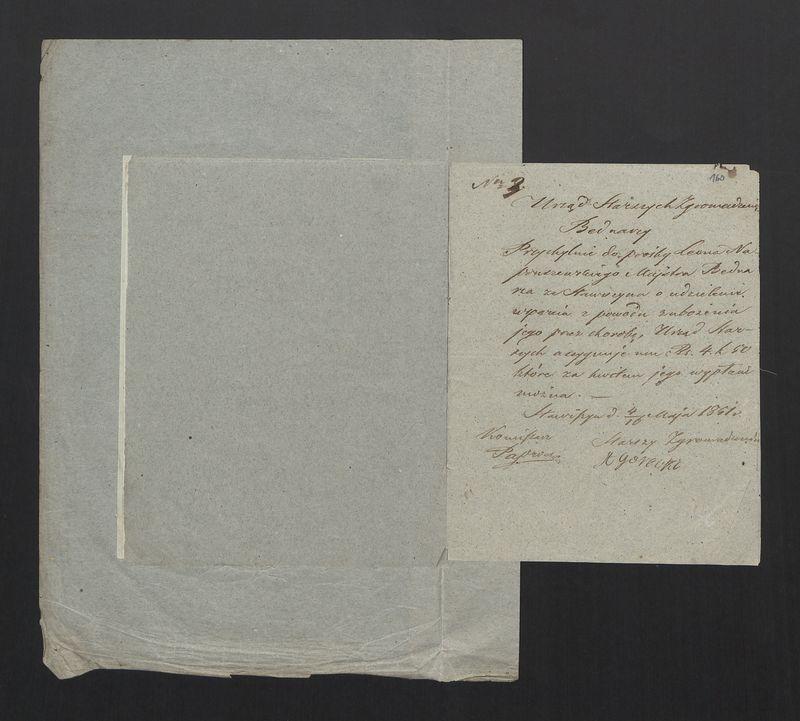 160
No 3.
Urząd Starszych Zgromadzenia
Bednarzy
Przychylnie do prośby Leona Na-
Majstra Bedna
rza ze Stawiszyna o udzielenie
wsparcia z powodu zubożenia
jego przez chorobę, Urząd Star-
szych asygnuje mu Rs. 4. k 50
które za kwitem jego wypłacić
można. —
Stawiszyn d. 4/16 Maja 1861 r.
Starszy Zgromadzenia
A Górecki